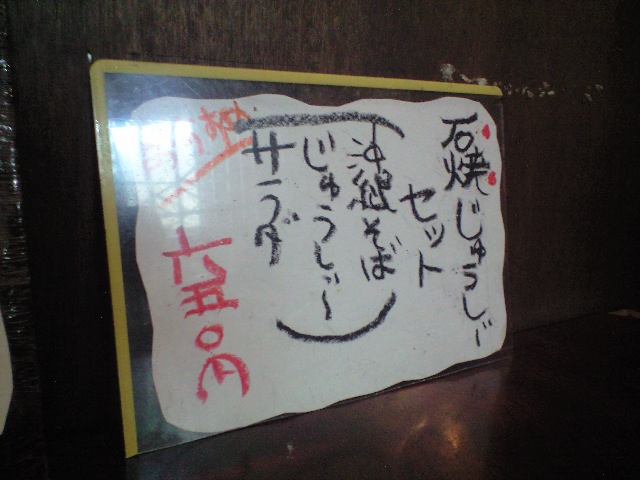 石焼じゅうしぃ
セット
(沖縄そば
じゅうしぃ〜
サラダ)
七五〇円